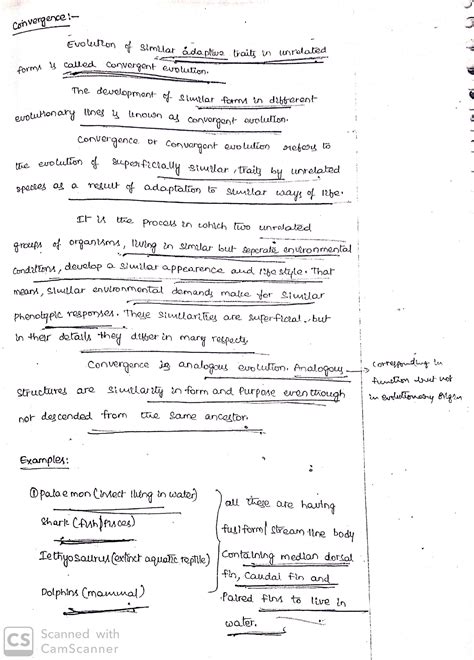 Convergence:-
Evolution of similar adaptive traits in unrelated
forms is called convergent evolution.
The development of similar forms in different
evolutionary lines is known as convergent evolution.
Convergence or convergent evolution refers to
the evolution of superficially similar, traits by unrelated
species as a result of adaptation to similar ways of life.
It is the process in which two unrelated
groups of organisms, living in similar but seperate environmental
conditions, develop a similar appearence and life style. That
means, similar environmental demands make for similar
phenotypic responses. These similarities are superficial. but
in their details they differ in many respects.
Convergence is analogous evolution. Analogous
structures are similarity in form and Purpose eventhough
not descended from the same ancestor.
corresponding in
function but not
in evolutionary origin
Examples:
① Palaemon (insect living in water)
Shark (fish/Pisces)
Icthyosaurus (extinct aquatic reptile)
Dolphins (mammal)
all these are having
fusiform/ stream line body
Containing median dorsal
fin, Caudal fin and
Paired fins to live in
water.
CS Scanned with
CamScanner